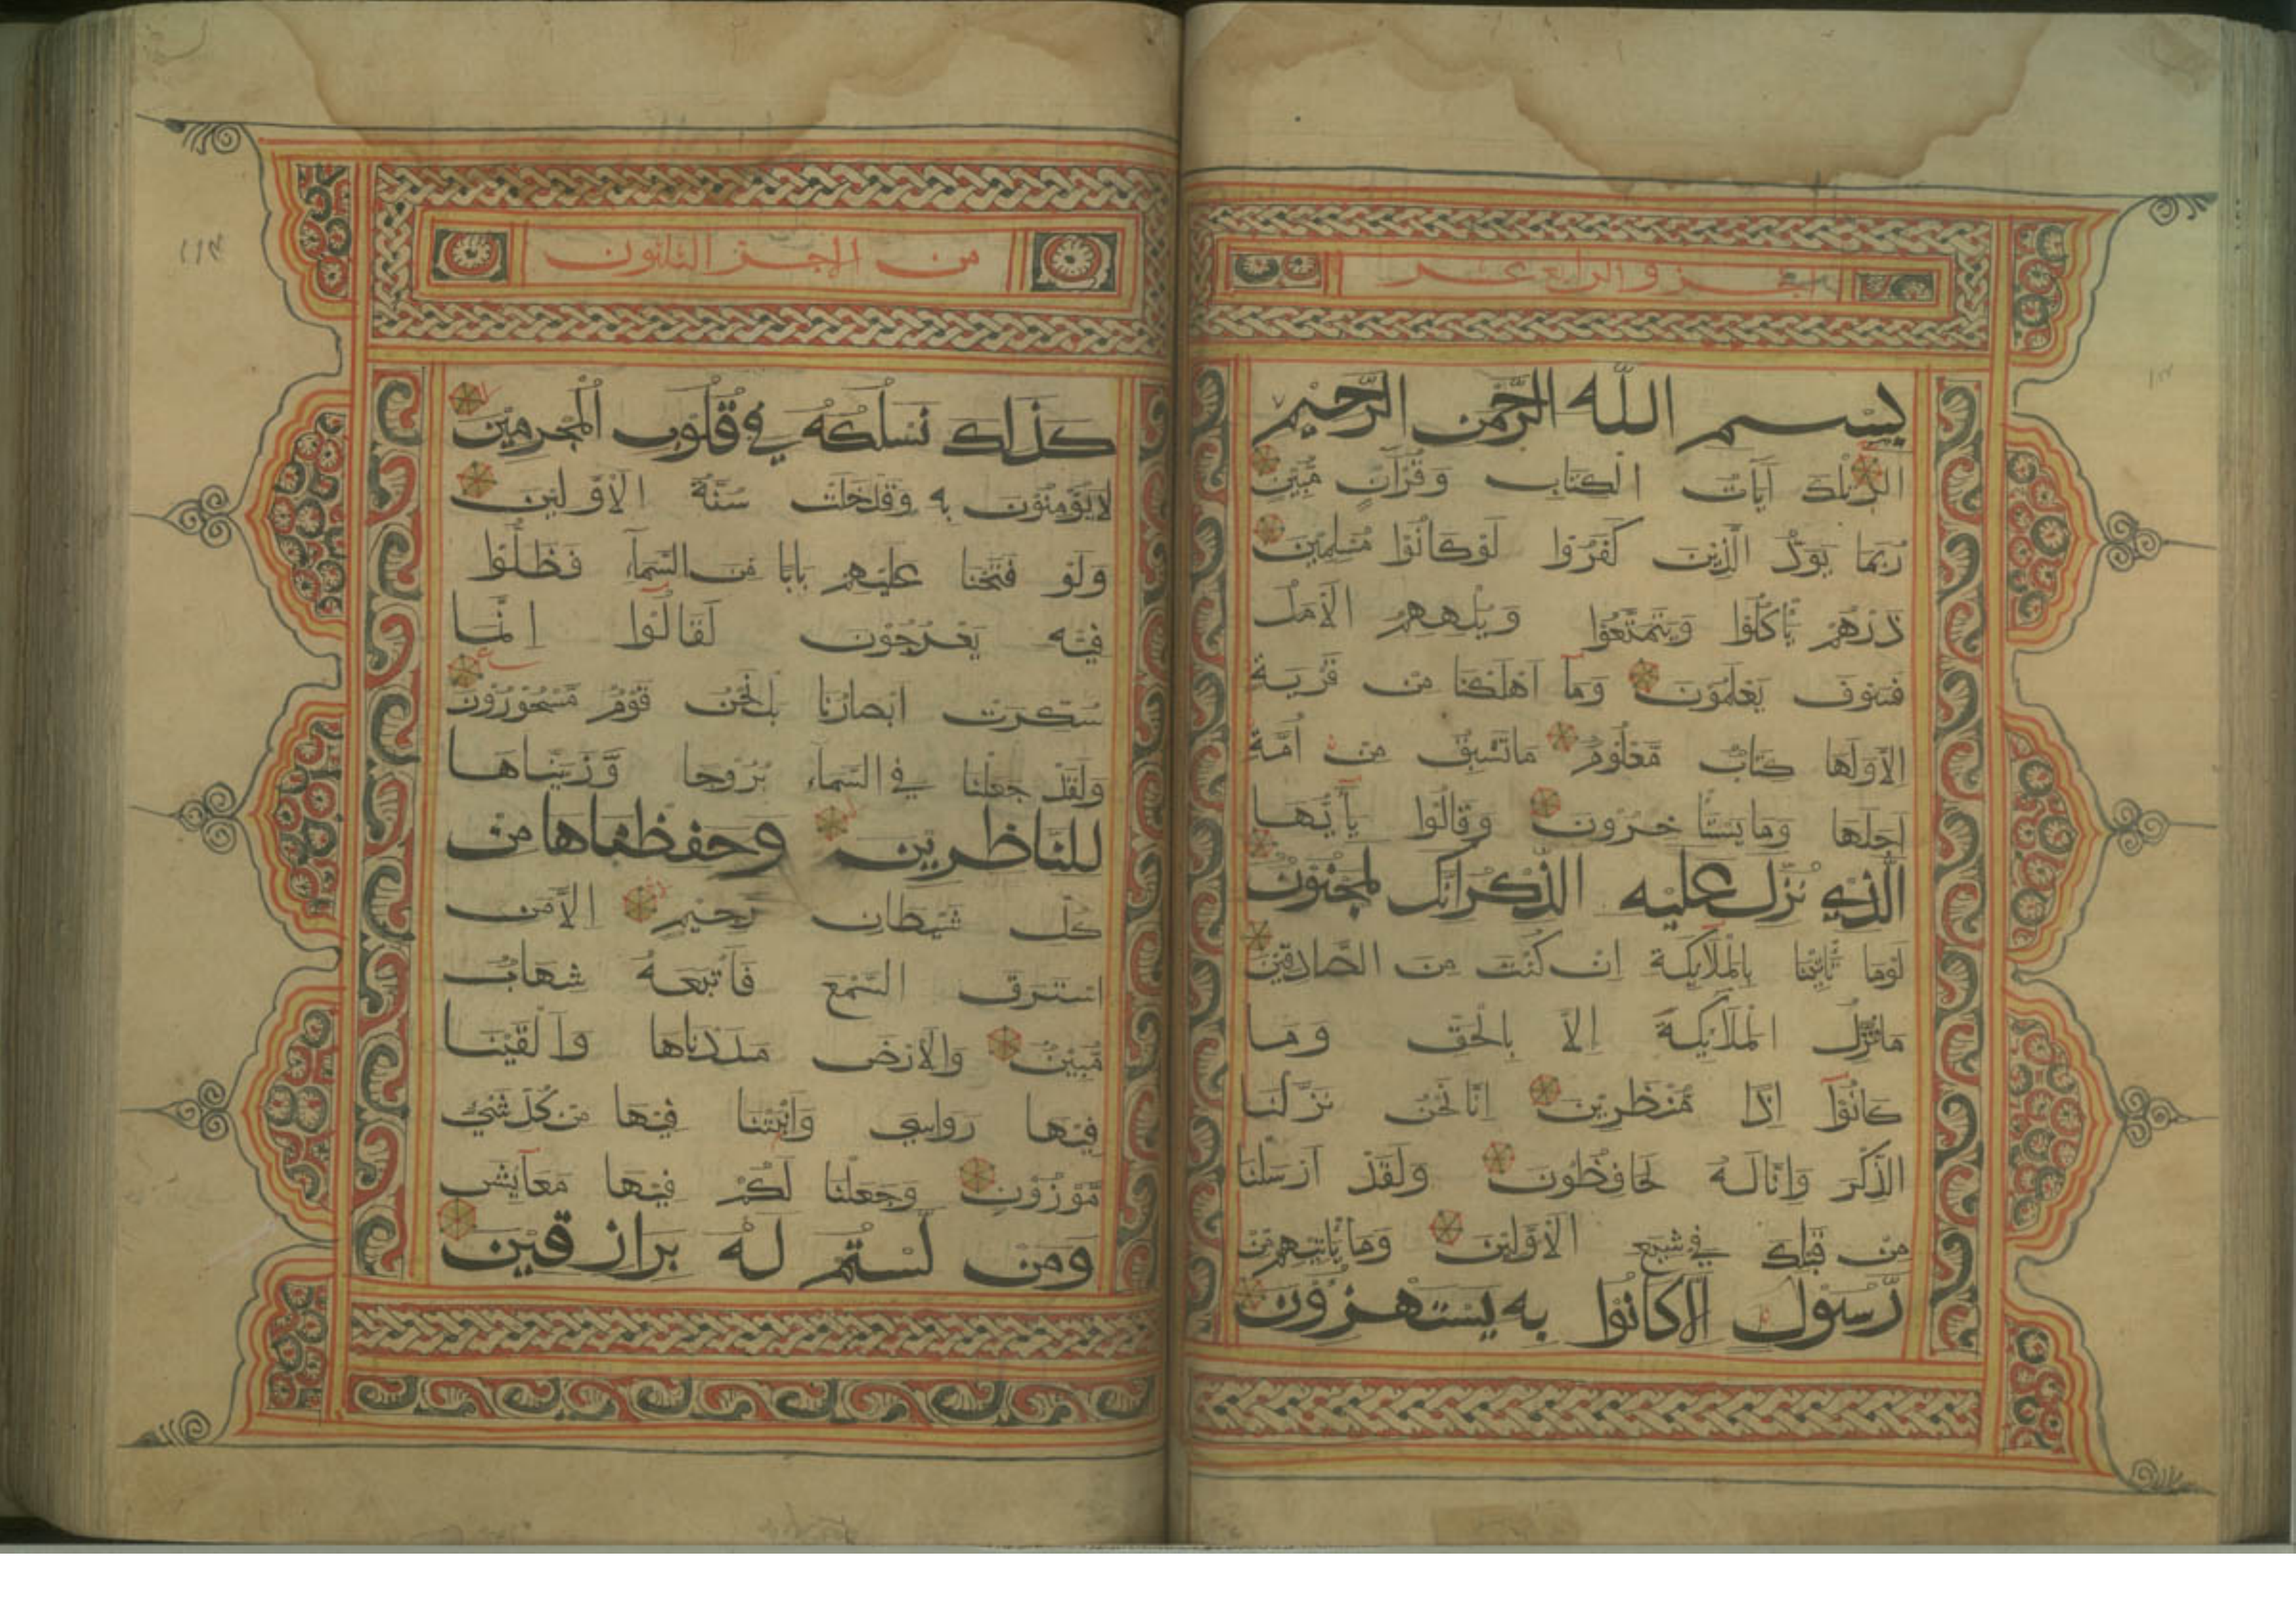 الجزو الرابع عشر
بِسْمِ اللَّهِ الرَّحْمٰنِ الرَّحِيْمِ
الٓرٰ تِلْكَ آيَاتُ الْكِتَابِ وَقُرْآنٍ مُّبِيْنٍ
رُبَمَا يَوَدُّ الَّذِيْنَ كَفَرُوْا لَوْكَانُوْا مُسْلِمِيْنَ
ذَرْهُمْ يَأْكُلُوْا وَيَتَمَتَّعُوْا وَيُلْهِهِمُ الْأَمَلُ
فَسَوْفَ يَعْلَمُوْنَ وَمَآ اَهْلَكْنَا مِنْ قَرْيَةٍ
الَّا وَلَهَا كِتَابٌ مَّعْلُوْمٌ مَاتَسْبِقُ مِنْ اُمَّةٍ
اَجَلَهَا وَمَا يَسْتَأْخِرُوْنَ وَقَالُوْا يٓاَيُّهَا
الَّذِيْ نُزِّلَ عَلَيْهِ الذِّكْرُ اِنَّكَ لَمَجْنُوْنٌ
لَوْمَا تَأْتِيْنَا بِالْمَلَآئِكَةِ اِنْ كُنْتَ مِنَ الصَّادِقِيْنَ
مَانُنَزِّلُ الْمَلَآئِكَةَ اِلَّا بِالْحَقِّ وَمَا
كَانُوْآ اِذًا مُّنْظَرِيْنَ اِنَّا نَحْنُ نَزَّلْنَا
الذِّكْرَ وَاِنَّالَهُ لَحَافِظُوْنَ وَلَقَدْ اَرْسَلْنَا
مِنْ قَبْلِكَ فِيْ شِيَعِ الْاَوَّلِيْنَ وَمَا يَأْتِيْهِمْ مِّنْ
رَّسُوْلٍ اِلَّا كَانُوْا بِهِ يَسْتَهْزِؤُنَ
من الاجز الثلثون
كَذٰلِكَ نَسْلُكُهُ فِيْ قُلُوْبِ الْمُجْرِمِيْنَ
لَا يُؤْمِنُوْنَ بِهِ وَقَدْ خَلَتْ سُنَّةُ الْاَوَّلِيْنَ
وَلَوْ فَتَحْنَا عَلَيْهِمْ بَابًا مِّنَ السَّمَآءِ فَظَلُّوْا
فِيْهِ يَعْرُجُوْنَ لَقَالُوْآ اِنَّمَا
سُكِّرَتْ اَبْصَارُنَا بَلْ نَحْنُ قَوْمٌ مَّسْحُوْرُوْنَ
وَلَقَدْ جَعَلْنَا فِي السَّمَآءِ بُرُوْجًا وَّزَيَّنَّاهَا
لِلنَّاظِرِيْنَ وَحَفِظْنَاهَا مِنْ
كُلِّ شَيْطَانٍ رَّجِيْمٍ اِلَّا مَنِ
اسْتَرَقَ السَّمْعَ فَاَتْبَعَهُ شِهَابٌ
مُّبِيْنٌ وَالْاَرْضَ مَدَدْنَاهَا وَاَلْقَيْنَا
فِيْهَا رَوَاسِيَ وَاَنْبَتْنَا فِيْهَا مِنْ كُلِّ شَيْءٍ
مَّوْزُوْنٍ وَجَعَلْنَا لَكُمْ فِيْهَا مَعَآيِشَ
وَمَنْ لَّسْتُمْ لَهُ بِرَازِقِيْنَ